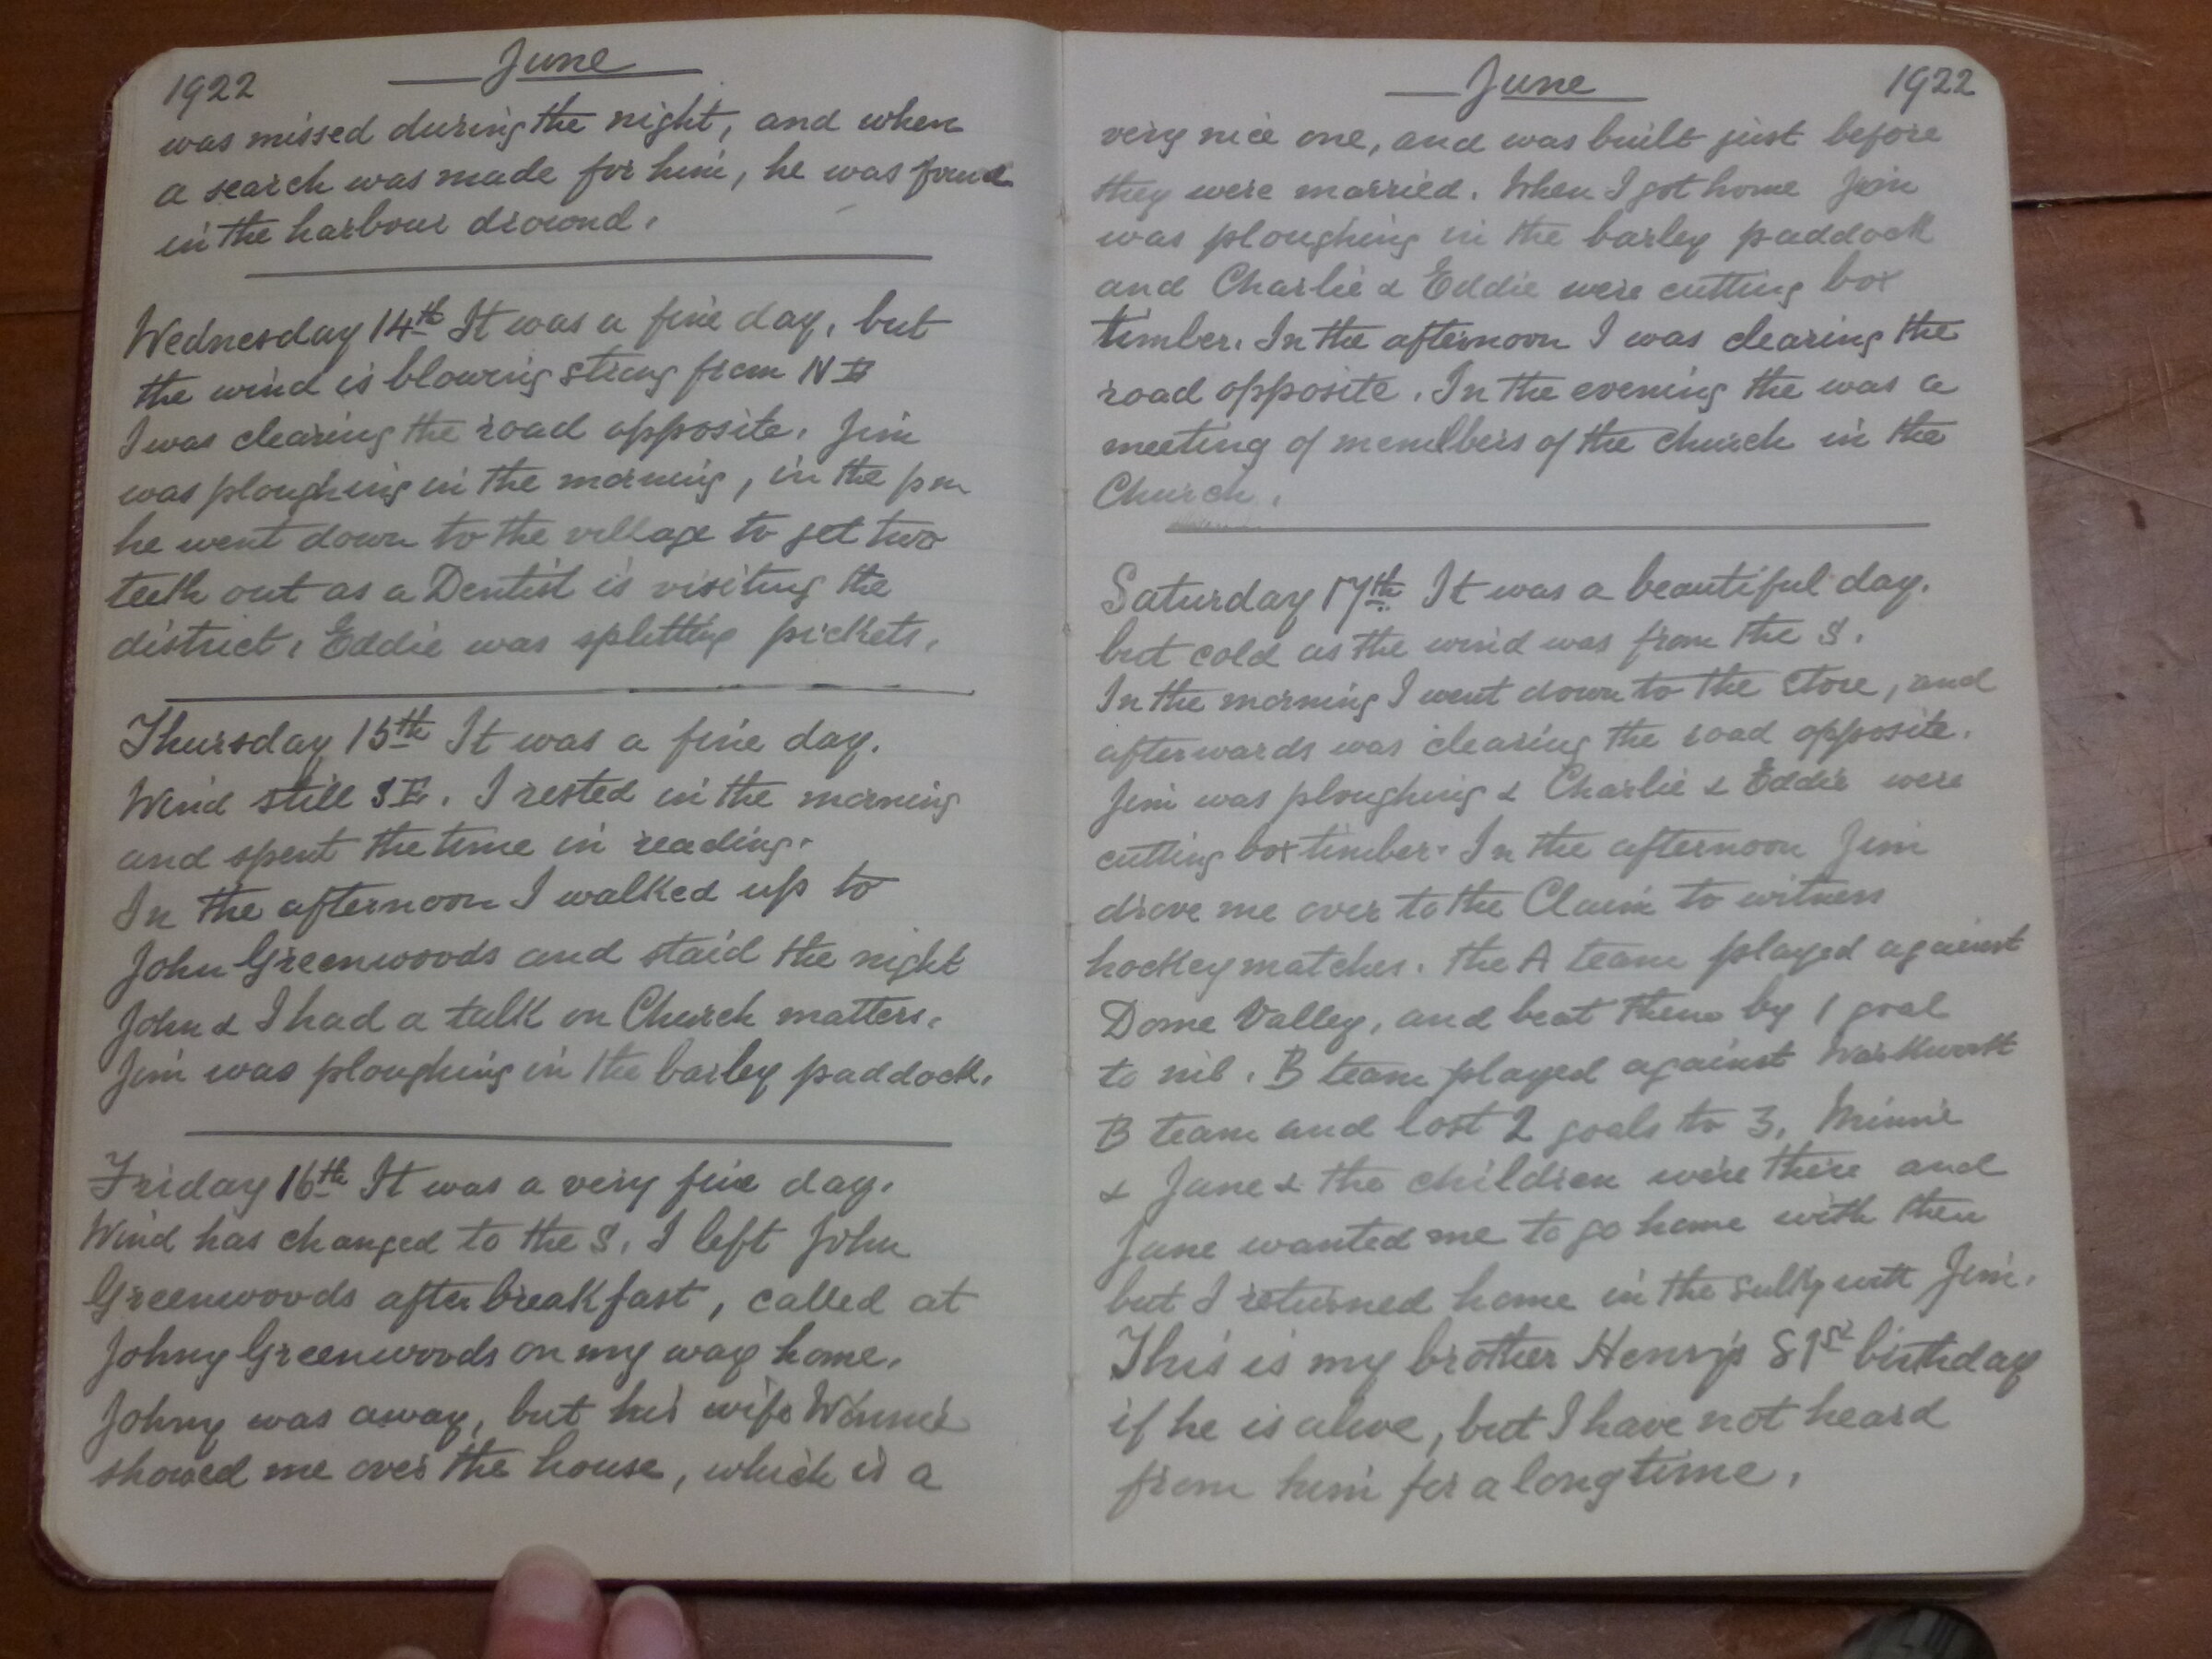 1922 June
was missed during the night, and when
a search was made for him, he was found
in the harbour drownd.
Wednesday 14th It was a fine day, but
the wind is blowing strong from N E
I was clearing the road opposite. Jim
was ploughing in the morning, in the pm
he went down to the village to get two
teeth out as a Dentist is visiting the
district. Eddie was splitting pickets.
Thursday 15th It was a fine day.
Wind still S E. I rested in the morning
and spent the time in reading.
In the afternoon I walked up to
John Greenwoods and staid the night
John & I had a talk on Church matters.
Jim was ploughing in the barley paddock.
Friday 16th It was a very fine day.
Wind has changed to the S. I left John
Greenwoods after breakfast, called at
Johny Greenwoods on my way home.
Johny was away, but his wife Winnie
showed me over the house, which is a
June 1922
very nice one, and was built just before
they were married. When I got home Jim
was ploughing in the barley paddock
and Charlie & Eddie were cutting box
timber. In the afternoon I was clearing the
road opposite. In the evening the was a
meeting of members of the church in the
Church.
Saturday 17th It was a beautiful day.
but cold as the wind was from the S.
In the morning I went down to the store, and
afterwards was clearing the road opposite.
Jim was ploughing & Charlie & Eddie were
cutting box timber. In the afternoon Jim
drove me over to the Claim to witness
hockey matches. The A team played against
Dome Valley, and beat them by 1 goal
to nil. B team played against Warkworth
B team and lost 2 goals to 3. Minnie
& June & the children were there and
June wanted me to go home with them
but I returned home in the sulky with Jim.
This is my brother Henry's 81st birthday
if he is alive, but I have not heard
from him for a long time.